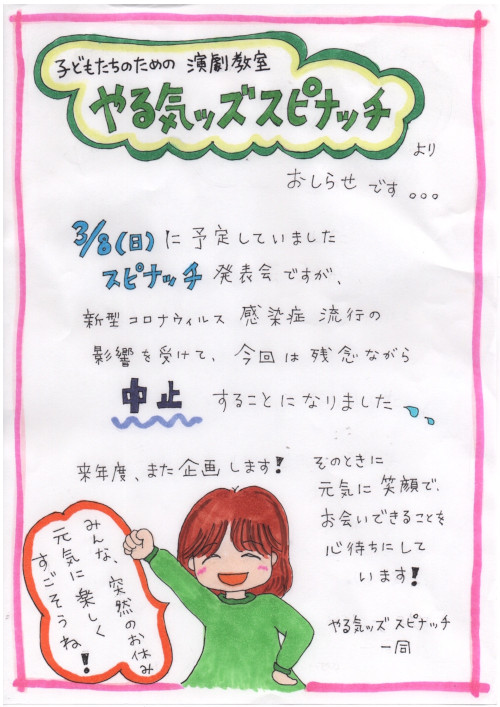 子どもたちのための 演劇教室
やる気ッズスピナッチ
より
おしらせ です。。。
3/8(日)に予定していました
スピナッチ 発表会ですが、
新型コロナウィルス 感染症 流行の
影響を受けて、今回は残念ながら
中止 することになりました
来年度、また企画します!
そのときに
元気に笑顔で、
お会いできることを
心待ちにして
います!
やる気ッズ スピナッチ
一同
みんな、突然のお休み
元気に楽しく
すごそうね!